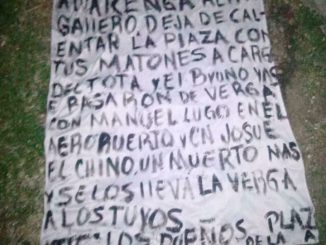 GALLERO. DEJA DE CAL-
ENTAR LA PLAZA CON
TUS MATONES A CARG
DEC TOTA Y EL BYUNO YAS
E PASARON DE VERGA
CON MANUEL LUGO EN EL
AEROPUERTO Y CN JOSUE
EL CHINO. UN MUERTO MAS
Y SE LOS LLEVA LA VERGA
A LOS TUYOS.
LOS DUEÑOS PLAZ
DE LA A